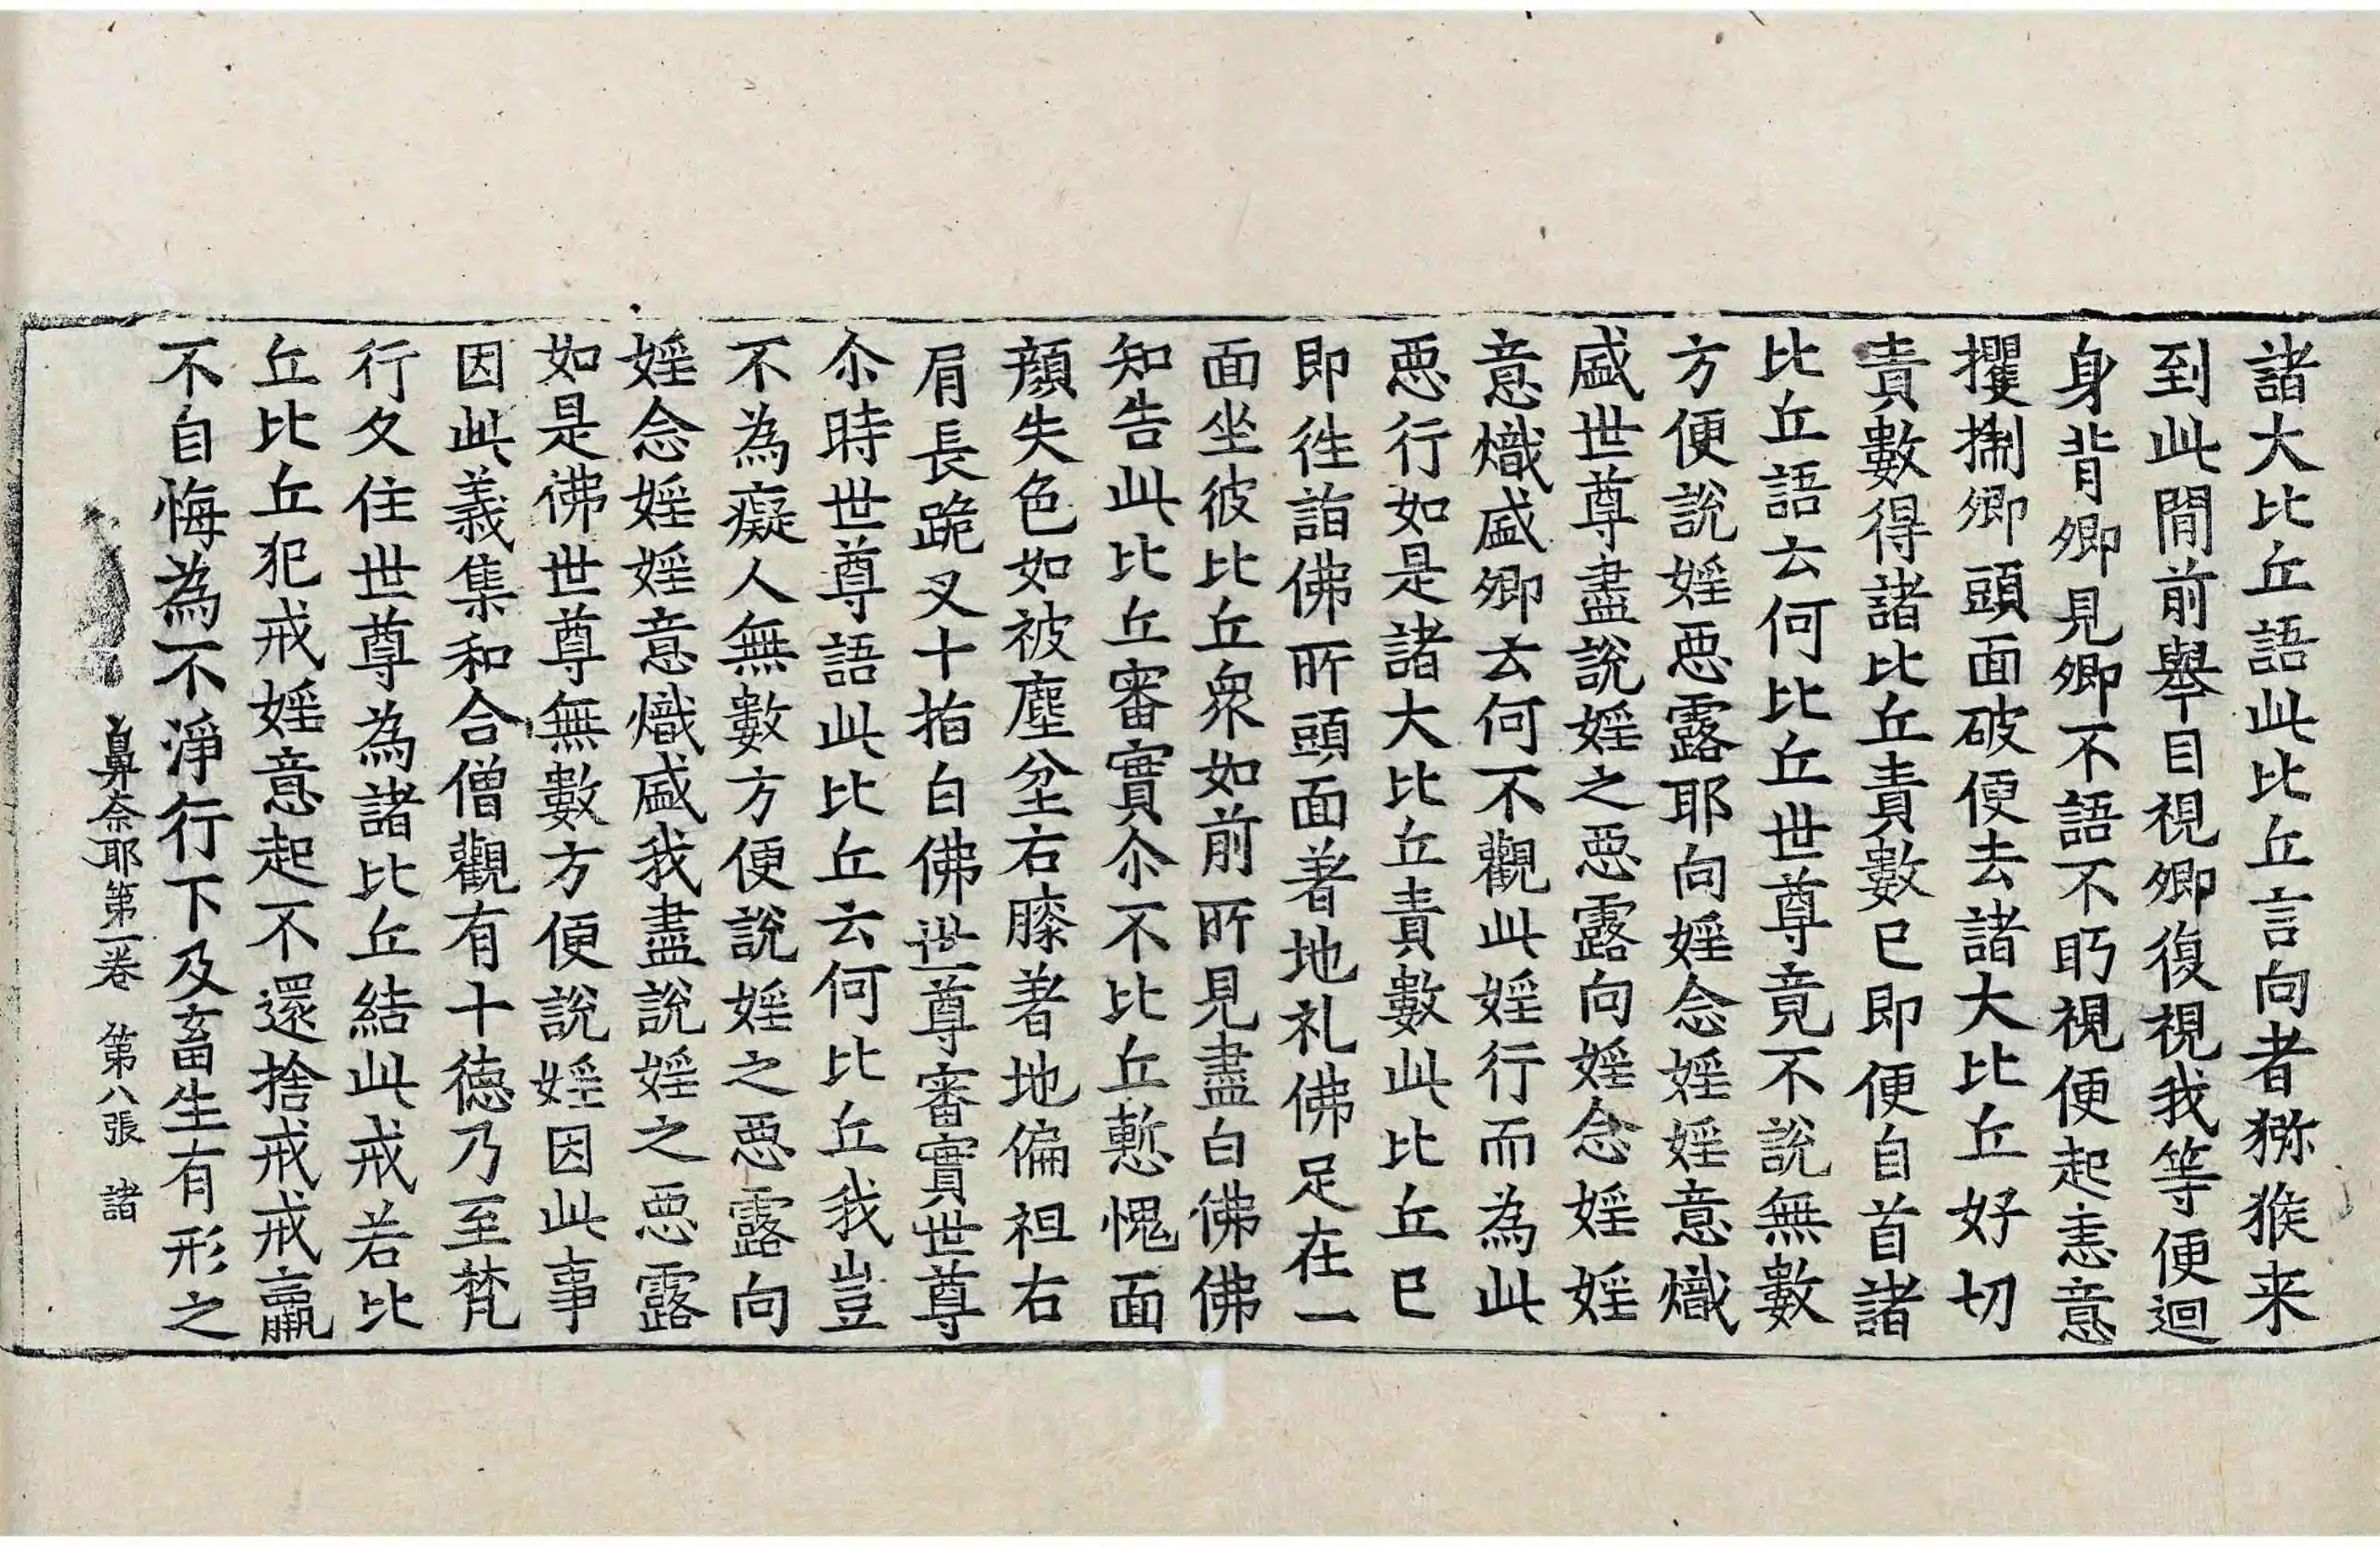 諸大比丘語此比丘言向者猕猴来
到此間前舉目視卿復視我等便迴
身背卿見卿不語不眄視便起恚意
攫搊卿頭面破便去諸大比丘好切
責數得諸比丘責數已即便自首諸
比丘語云何比丘世尊竟不說無數
方便說婬惡露耶向婬念婬婬意熾
盛世尊盡說婬之惡露向婬念婬婬
意熾盛卿云何不觀此婬行而為此
惡行如是諸大比丘責數此比丘已
即往詣佛所頭面著地礼佛足在一
面坐彼比丘衆如前所見盡白佛佛
知告此比丘審實尒不比丘慙愧面
顏失色如被塵坌右膝著地偏袒右
肩長跪叉十指白佛世尊審實世尊
尒時世尊語此比丘云何比丘我豈
不為癡人無數方便說婬之惡露向
婬念婬婬意熾盛我盡說婬之惡露
如是佛世尊無數方便說婬因此事
因此義集和合僧觀有十德乃至梵
行久住世尊為諸比丘結此戒若比
丘比丘犯戒婬意起不還捨戒戒羸
不自悔為不淨行下及畜生有形之
鼻奈耶第一卷 第八張 諸